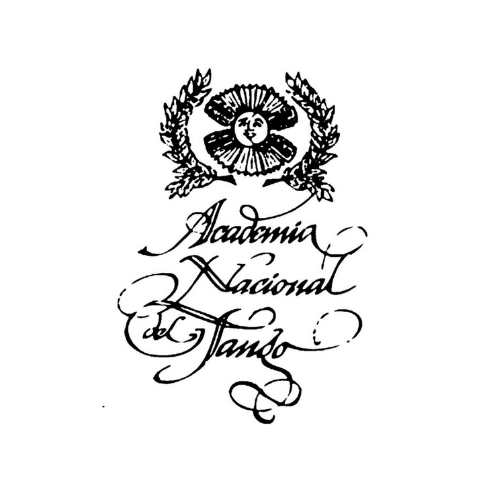 Academia
Nacional
del Tango